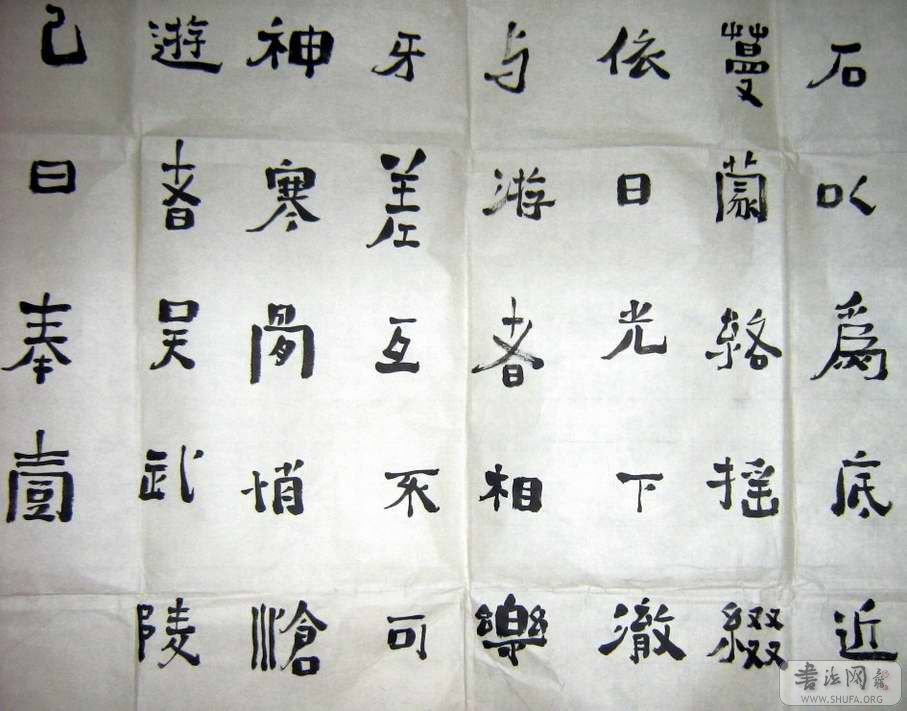 石以為底近
蔓蒙絡搖綴
依日光下澈
与游者相樂
牙差互不可
神寒骨悄愴
遊者吳武陵
己曰奉壹
書法网
WWW.SHUFA.ORG